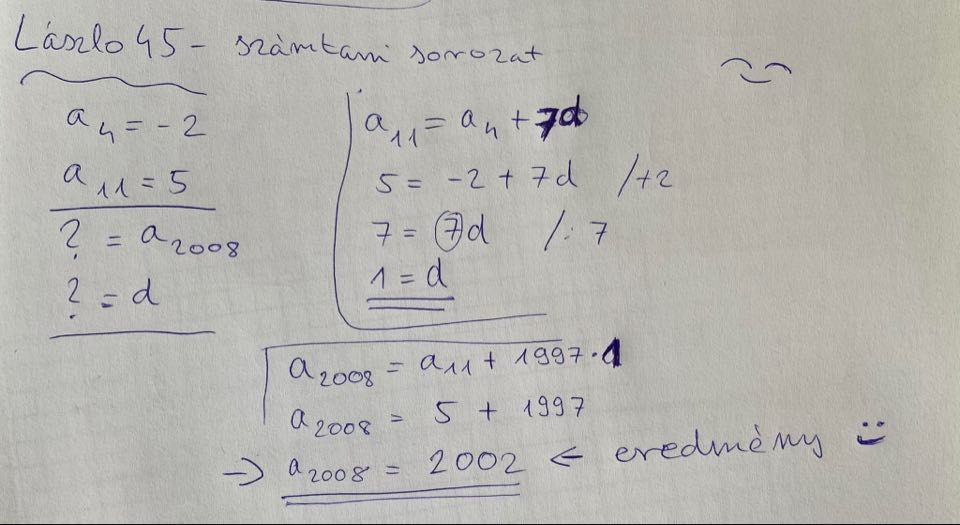 László 45 - számtani sorozat
a₄ = -2
a₁₁ = 5
? = a₂₀₀₈
? = d
a₁₁ = a₄ + 7d
5 = -2 + 7d /+2
7 = 7d /: 7
1 = d
a₂₀₀₈ = a₁₁ + 1997·1
a₂₀₀₈ = 5 + 1997
→ a₂₀₀₈ = 2002 ← eredmèny